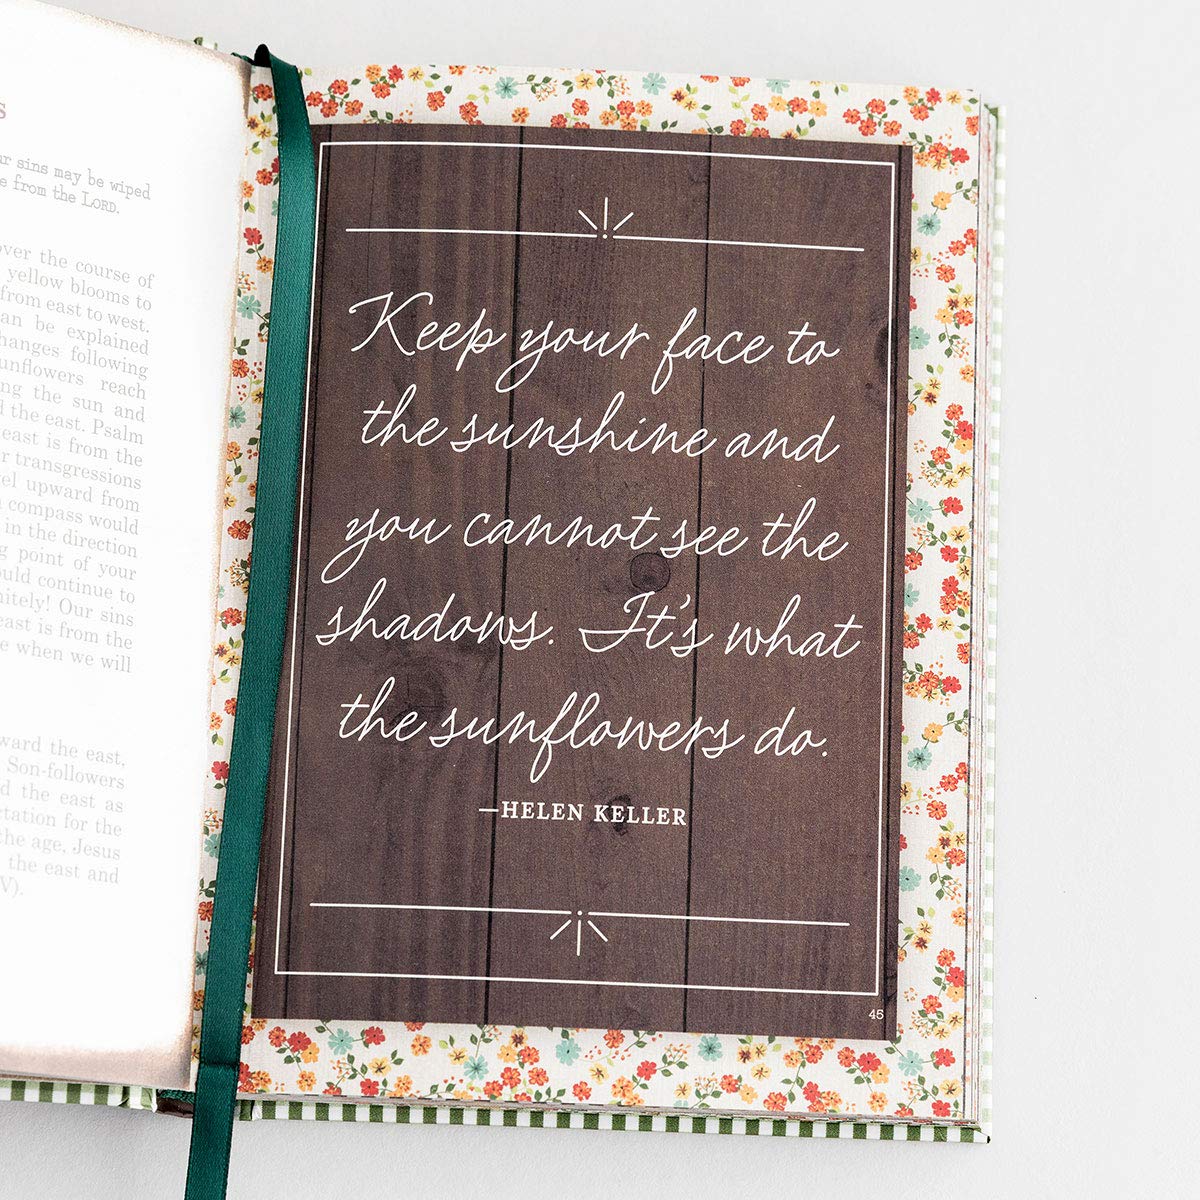 s
r sins may be wiped
e from the LORD.
over the course of
yellow blooms to
from east to west.
an be explained
hanges following
unflowers reach
ing the sun and
d the east. Psalm
east is from the
r transgressions
vel upward from
compass would
in the direction
ng point of your
ould continue to
nitely! Our sins
east is from the
e when we will
ward the east,
Son-followers
d the east as
ctation for the
the age. Jesus
the east and
V).
Keep your face to
the sunshine and
you cannot see the
shadows. It's what
the sunflowers do.
—HELEN KELLER
45